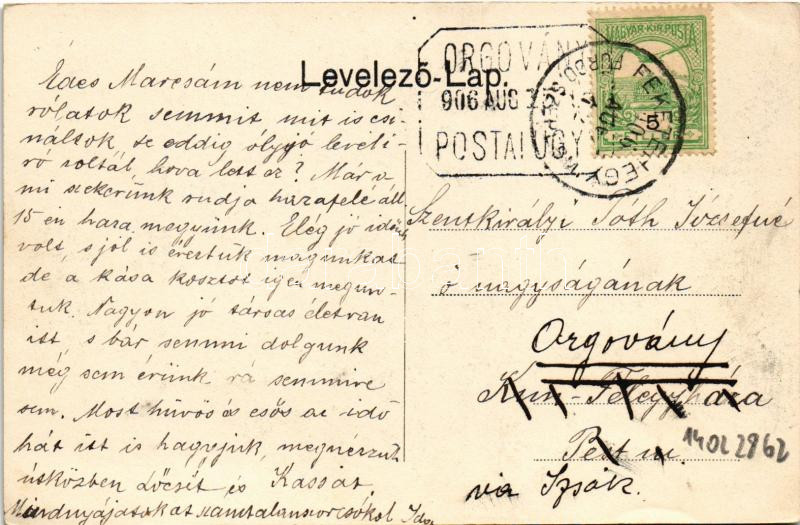 Levelező-Lap.
ORGOVÁNY
906 AUG
POSTAI ÜGY
MAGYAR KIR. POSTA
5
FEKETEHEGY
Édes Marcsám nem tudok
rólatok semmit mit is csi-
náltok, te eddig oly jó levelí-
ró voltál, hova lett ez? Már a
mi szekerünk rudja hazafelé áll
15 én haza megyünk. Elég jó időnk
volt, s jól is éreztük magunkat
de a kása kosztot igen megun-
tuk. Nagyon jó társas élet van
itt, s bár semmi dolgunk
még sem érünk rá semmire
sem. Most hűvös és esős az idő
hát itt is hagyjuk, megnézzük
útközben Lőcsét és Kassát,
Mindnyájatokat számtalanszor csókol Ida
Szentkirályi Tóth Józsefné
ő nagyságának
Orgovány
Kun-Félegyháza
Pest m.
via Izsák.
14012862